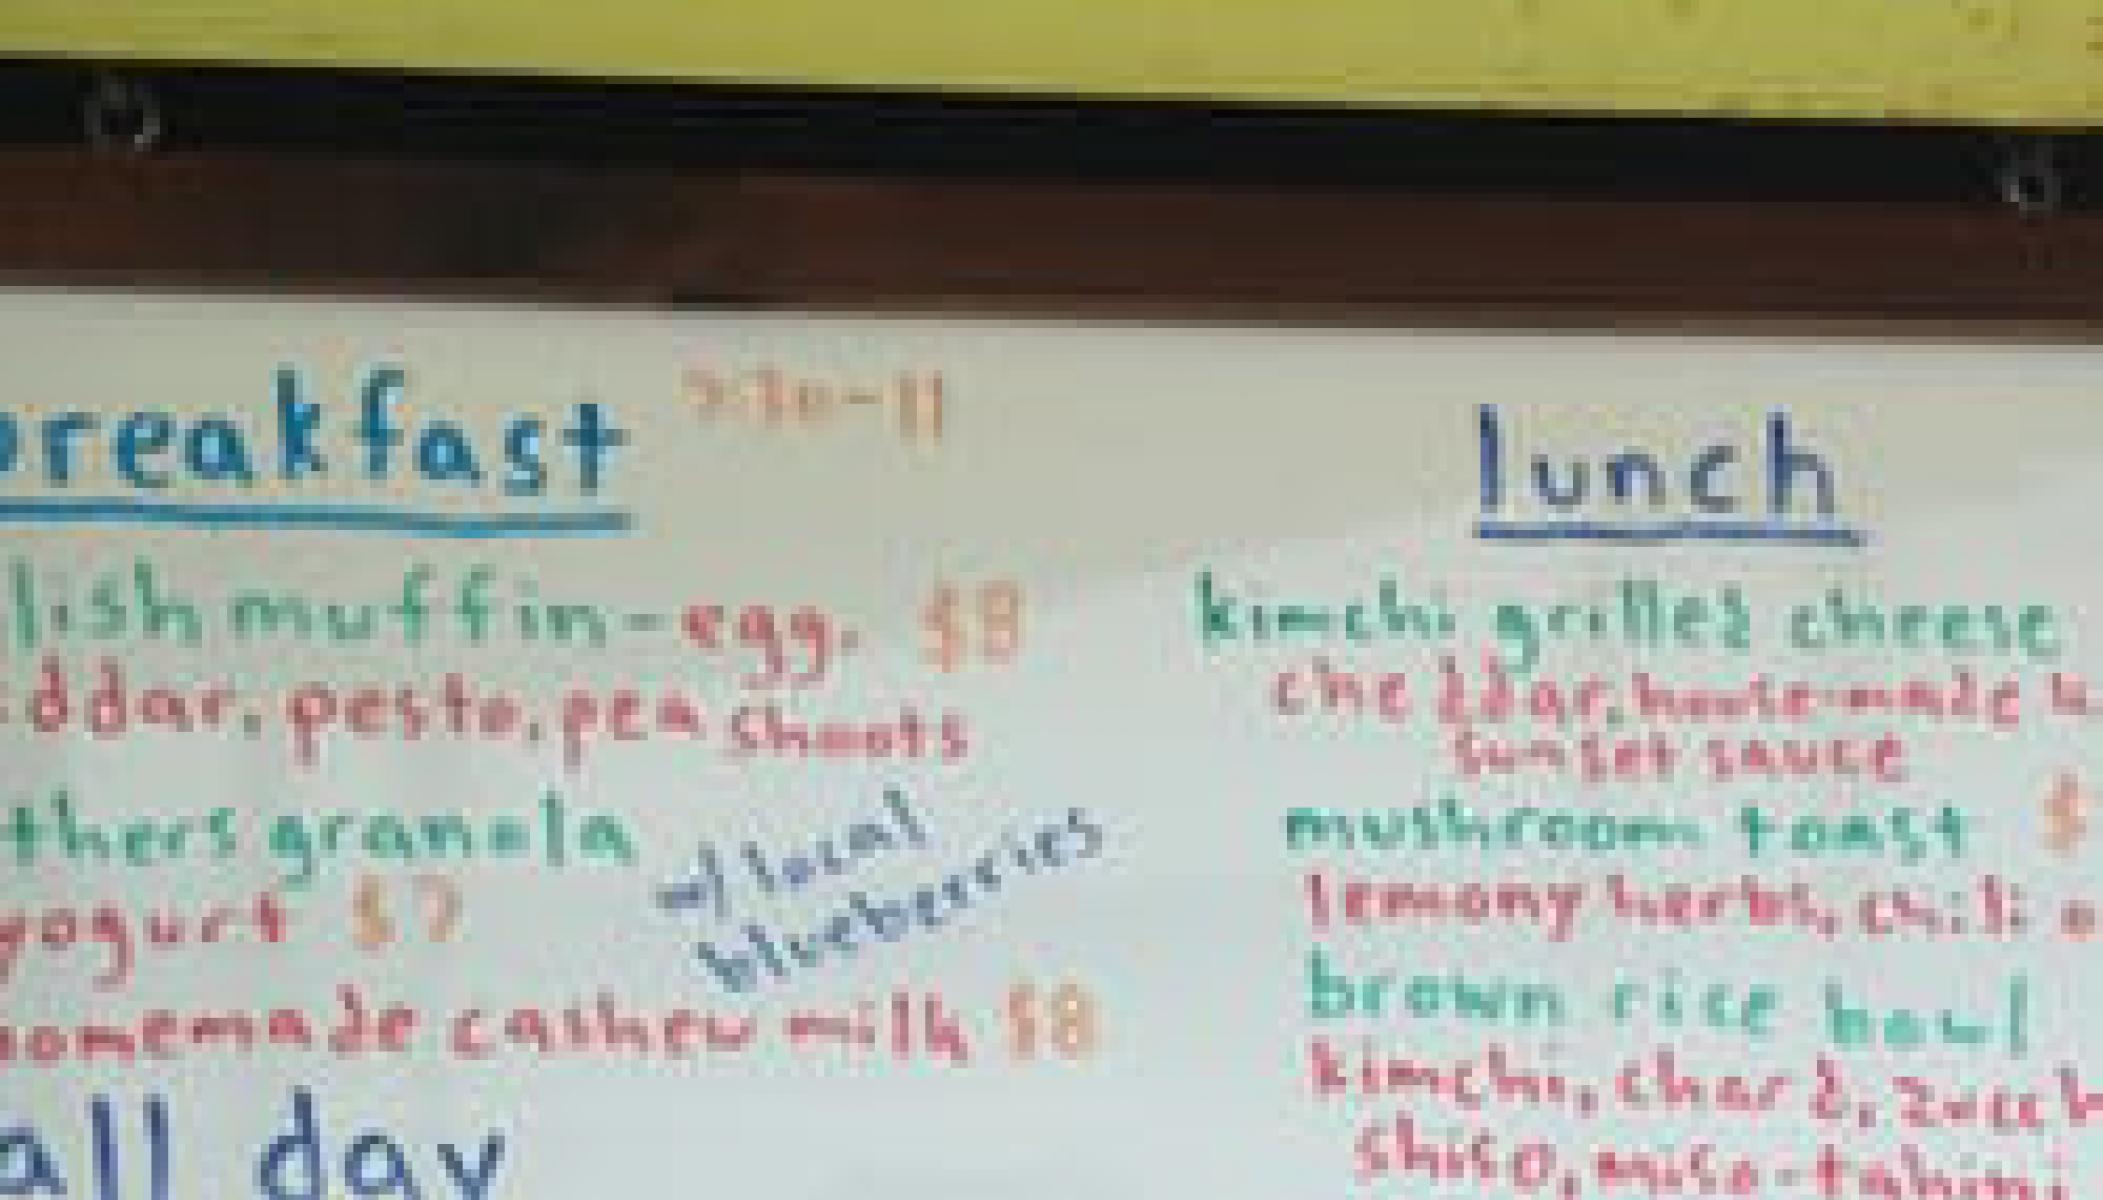 breakfast 7:30-11
lish muffin-egg, $8
ddar, pesto, pea shoots
thers granola
yogurt $7
w/ local
blueberries
homemade cashew milk $8
all day
lunch
kimchi grilled cheese
cheddar, house-made
sunset sauce
mushroom toast $
lemony herbs, chili o
brown rice bowl
kimchi, chard, zucch
shiso, miso-tahini